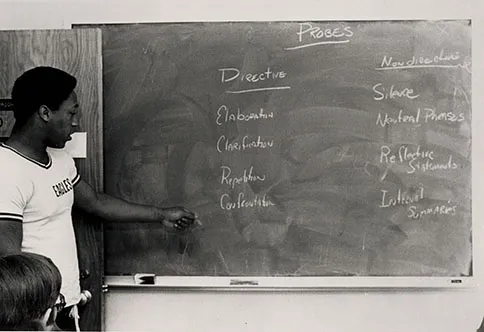 PROBES
Directive
Nondirective
Elaboration
Clarification
Repetition
Confrontation
Silence
Neutral Phrases
Reflective
Statements
Internal
Summaries
EAGLES